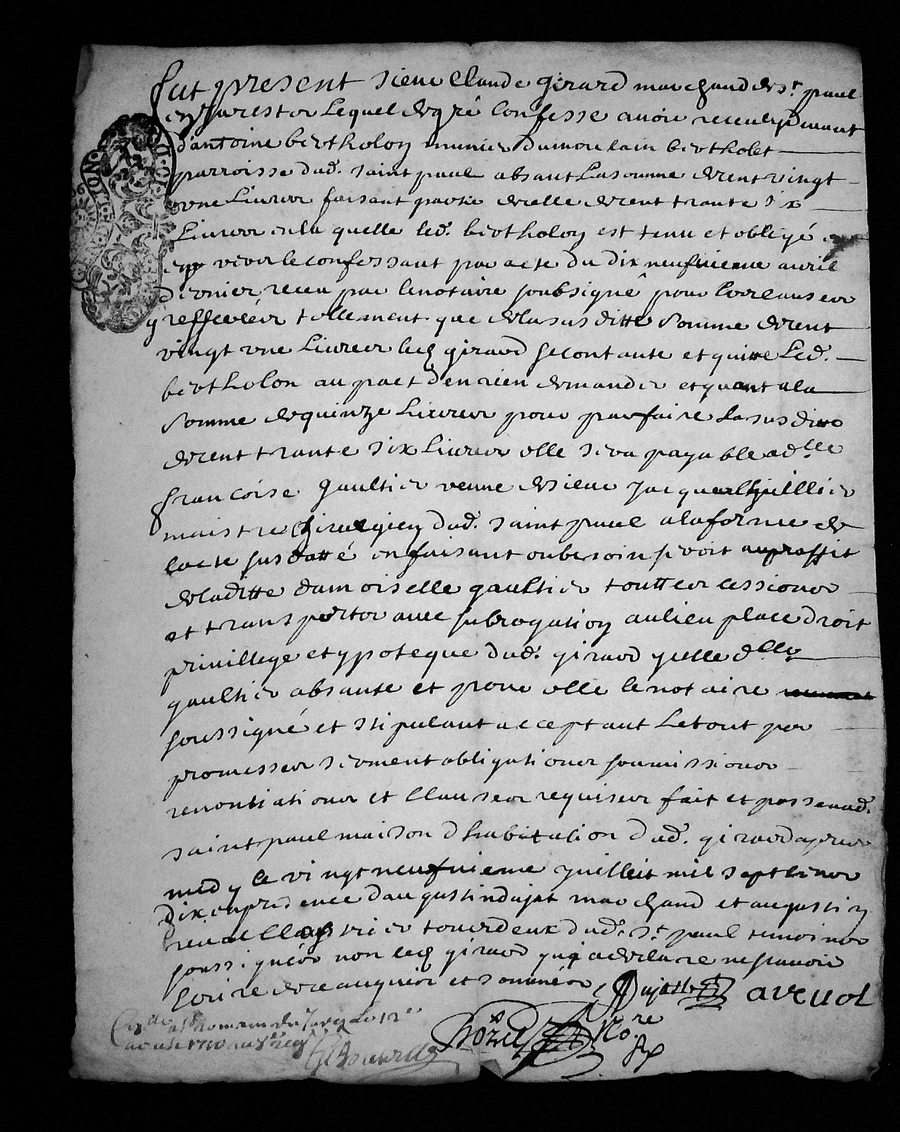 fut present sieur Claude girard marchand de st. paul
en Jarestz Lequel de gré Confesse avoir receu presentemant
d'antoine bertholon munier du moulain bertholet
parroisse dud. saint paul absant La somme de cent vingt
une Livres faisant partie de celle de cent trante six
Livres en la quelle led. bertholon est tenu et obligé
envers le confessant par acte du dix neufvieme avril
dernier receu par le notaire soubsigné pour les causes
y refferées tellement que de la susditte somme de cent
vingt une Livres led. girard se contante et quitte Led.
bertholon au pact d'en rien demander et quant a la
somme de quinze Livres pour parfaire la susditte
de cent trante six Livres elle sera payable a dlle
francoise gaultier veuve de sieur Jacques
maistre Chirurgien dud. saint paul a la forme de
lacte susdatté en faisant ou besoin seroit au proffit
de laditte damoiselle gaultier touttes cessions
et transportz avec subrogation au lieu place droit
privillege et ypoteque dud. girard y celle dlle
gaultier absante et pour elle le notaire
soussigné et stipulant acceptant Le tout par
promesses serment obligations soumissions
renontiations et Clauses requises fait et passé aud.
saint paul maison d'habitation dud. girard apres
midy le vingt neufvieme Juilliet mil sept cens
dix en presence d'augustin dujat marchand et augustin
tourdeux dud. st. paul temoins
soussignés non led. girard qui a declare ne scavoir
scrire de ce enquis et sommé
Dujast
Nore